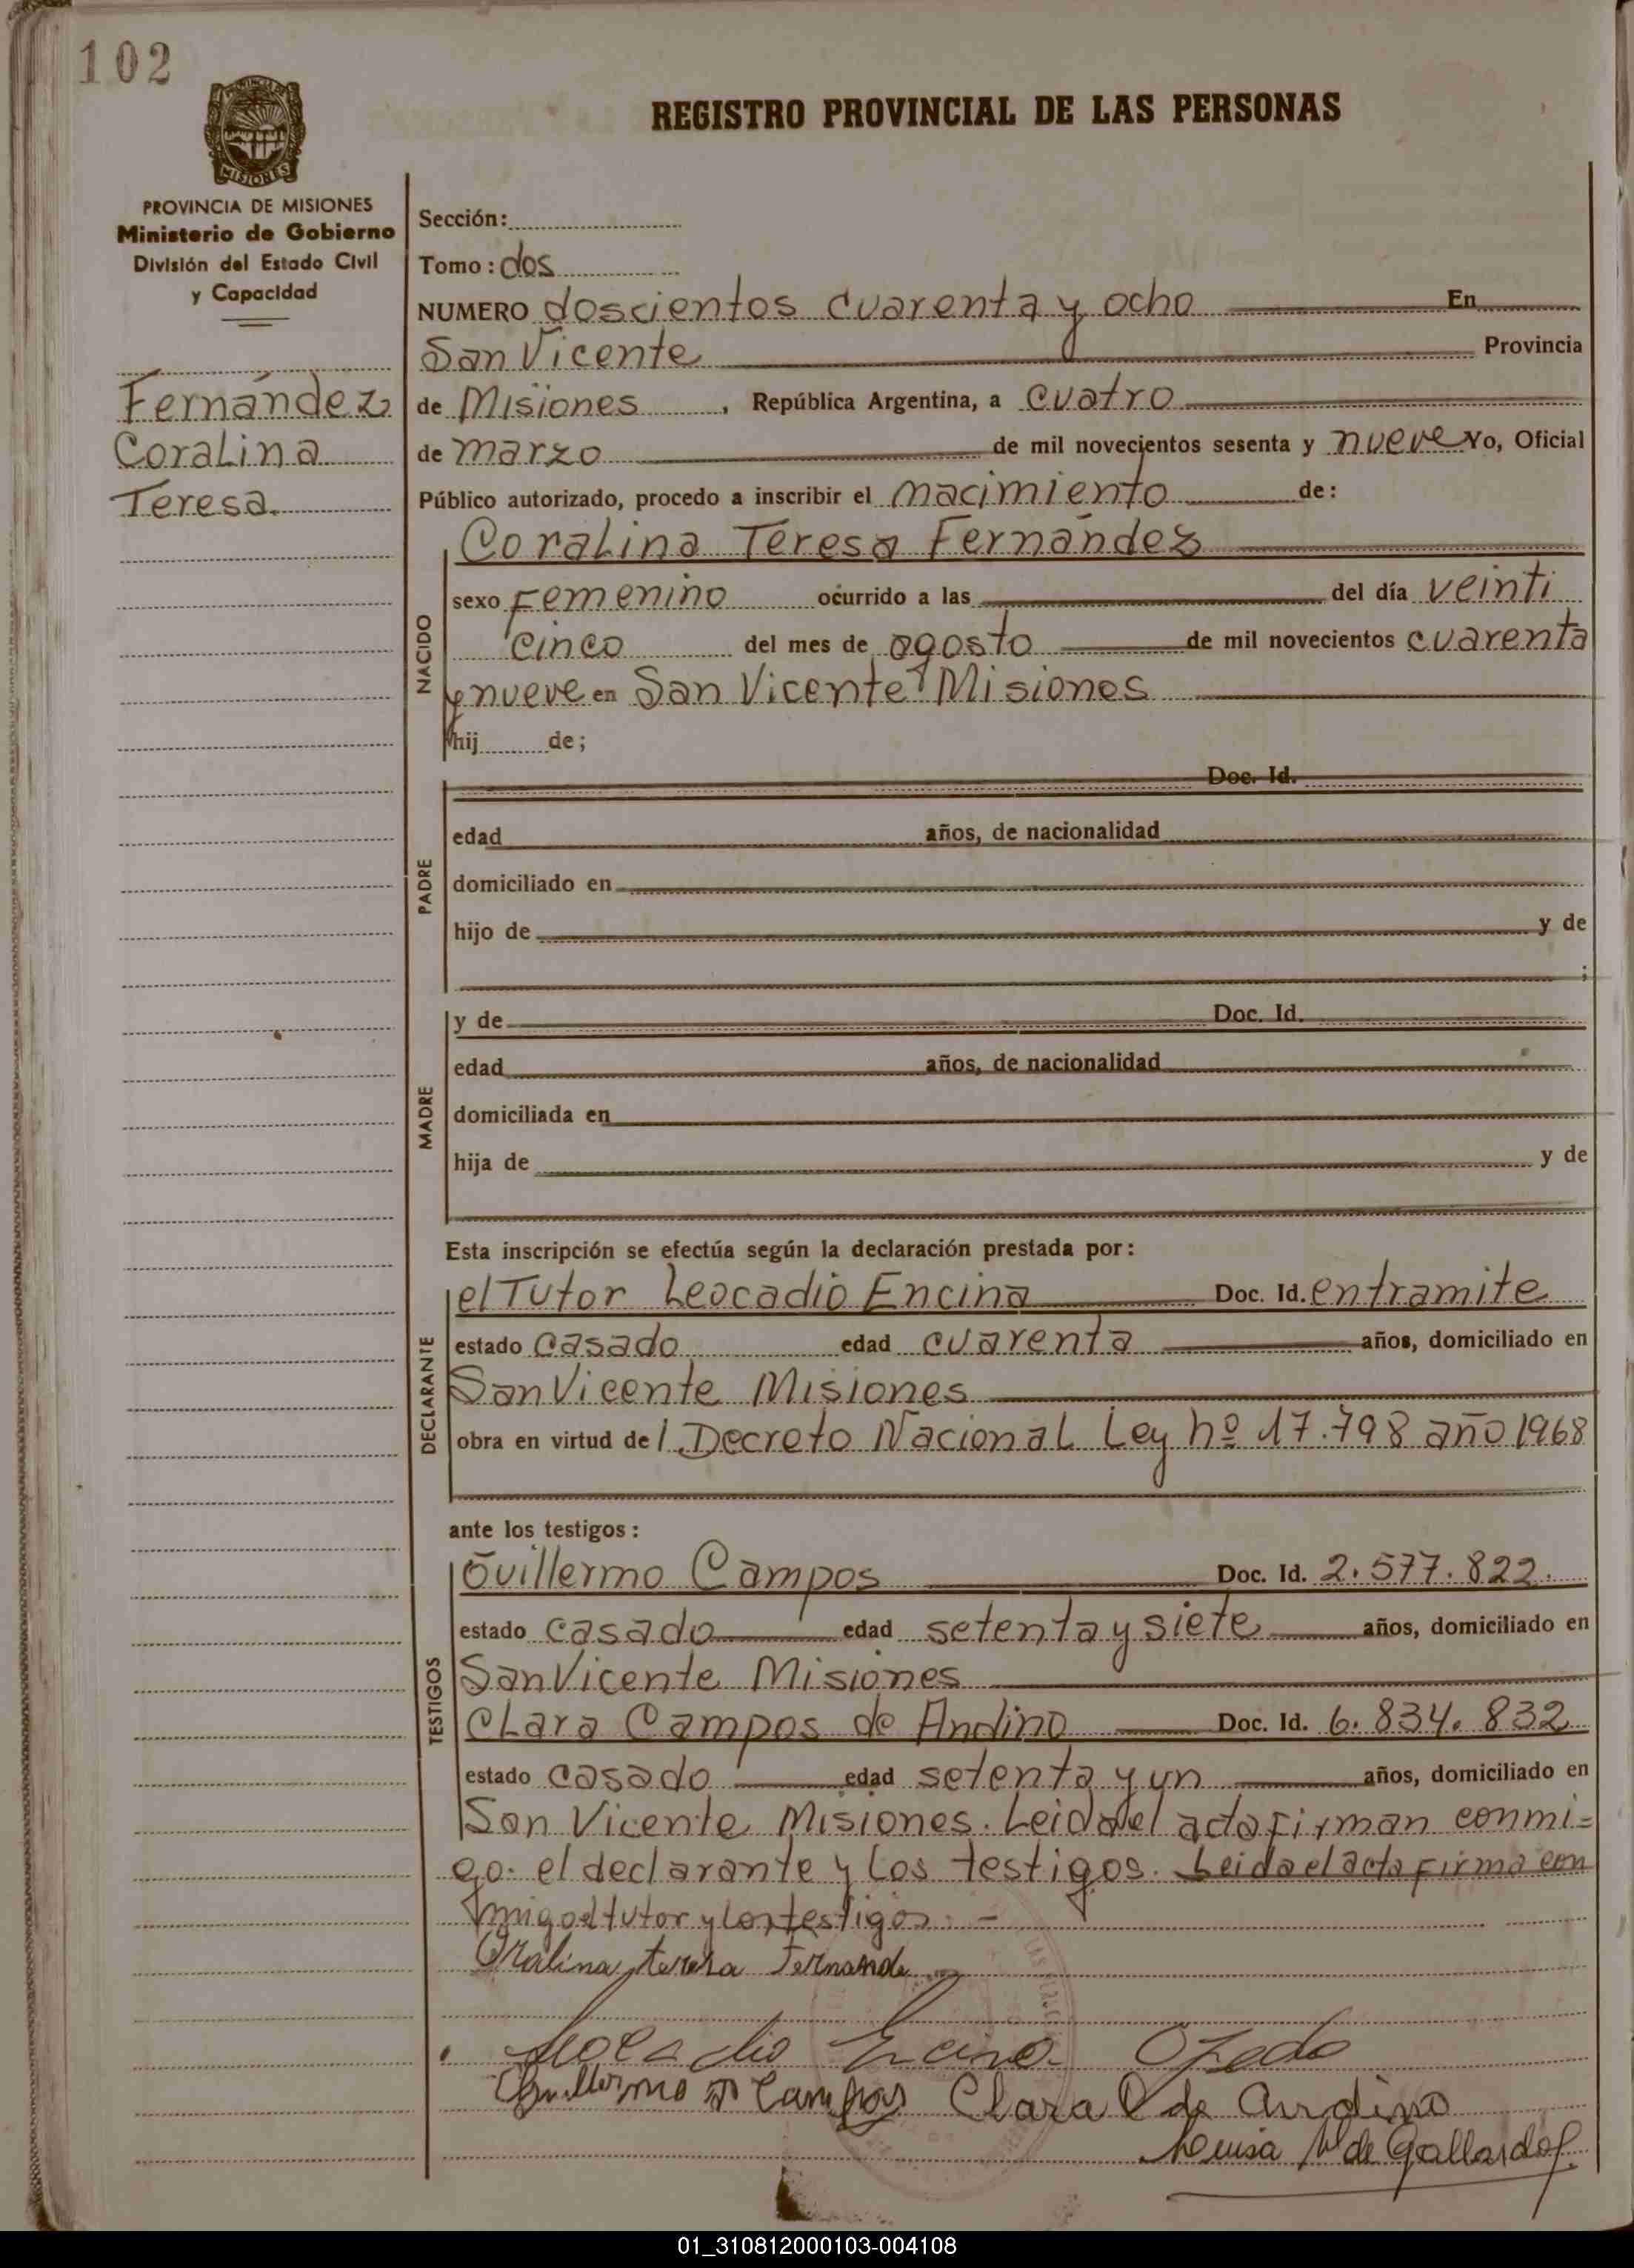 102
REGISTRO PROVINCIAL DE LAS PERSONAS
MISIONES
PROVINCIA DE MISIONES
Ministerio de Gobierno
División del Estado Civil
y Capacidad
Fernández
Coralina
Teresa.
Sección:
Tomo: dos
NUMERO doscientos cuarenta y ocho En
San Vicente Provincia
de Misiones, República Argentina, a cuatro
de marzo de mil novecientos sesenta y nueve Yo, Oficial
Público autorizado, procedo a inscribir el nacimiento de:
Coralina Teresa Fernández
NACIDO
sexo Femenino ocurrido a las del día veinti
cinco del mes de agosto de mil novecientos cuarenta
y nueve en San Vicente Misiones
hij de;
PADRE
Doc. Id.
edad años, de nacionalidad
domiciliado en
hijo de y de
;
MADRE
y de Doc. Id.
edad años, de nacionalidad
domiciliada en
hija de y de
Esta inscripción se efectúa según la declaración prestada por:
DECLARANTE
el Tutor Leocadio Encina Doc. Id. entramite
estado casado edad cuarenta años, domiciliado en
San Vicente Misiones
obra en virtud del Decreto Nacional Ley nº 17.798 año 1968
ante los testigos:
TESTIGOS
Guillermo Campos Doc. Id. 2.577.822.
estado casado edad setenta y siete años, domiciliado en
San Vicente Misiones
Clara Campos de Andino Doc. Id. 6.834.832
estado casado edad setenta y un años, domiciliado en
San Vicente Misiones. Leida el acta firman conmi=
go. el declarante y los testigos. Leida el acta firma con
migo el tutor y los testigos. -
Coralina teresa Fernande
Leocadio Encina Ojeda
Guillermo Campos Clara C de Andino
Luisa de Gallardo
01_310812000103-004108